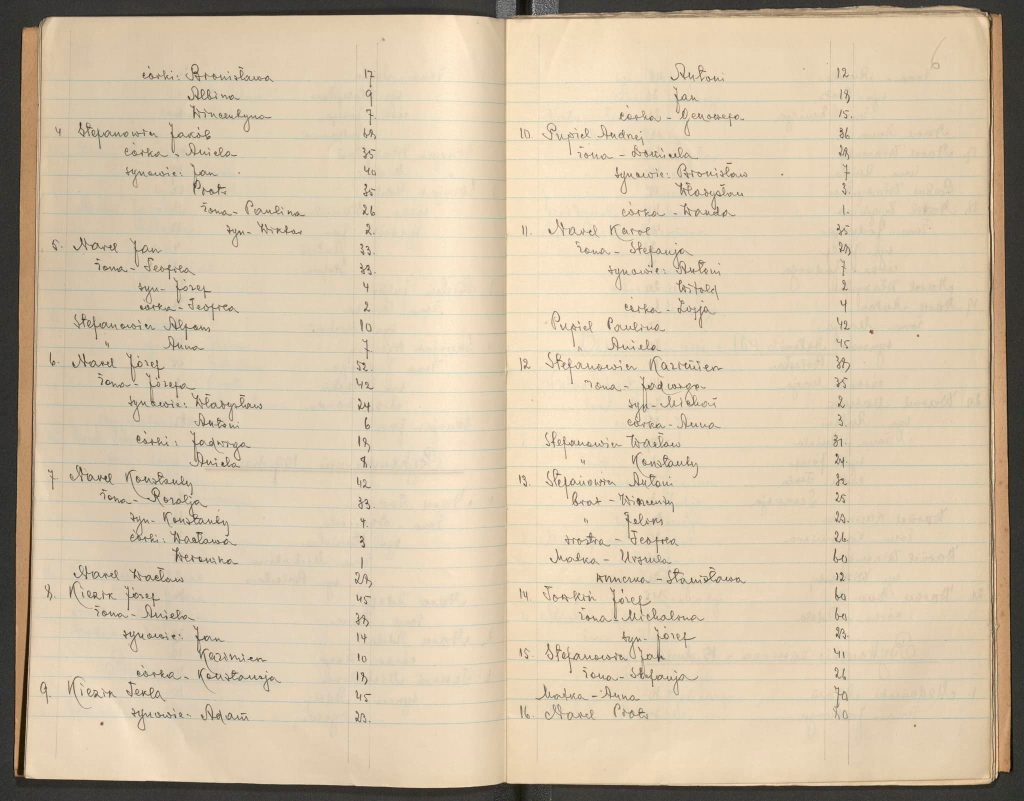 córki: Bronisława 17
Albina 9
Wincentyna 7
4 Stefanowicz Jakób
córka - Aniela 35
synowie: Jan 40
Prot 35
żona - Paulina 26
syn - Wiktor 2.
5. Narel Jan 33.
żona - Teofila 33.
syn - Józef 4
córka - Teofila 2
Stefanowicz Alfons 10
" Anna 7
6. Narel Józef 52
żona - Józefa 42
synowie: Władysław 24
Antoni 6
córki: Jadwiga 18
Aniela 8.
7 Narel Konstanty 42
żona - Rozalja 33.
syn - Konstanty 4.
córki: Wacława 3
Weronika 1
Narel Wacław 28
8. Kiezik Józef 45
żona - Aniela 38
synowie: Jan 14
Kazimierz 10
córka - Konstancja 18
9. Kiezik Tekla 45
synowie: Adam 23.
6
Antoni 12
Jan 18
córka - Genowefa 15.
10. Pupiel Andrzej 36
żona - Domicela 28
synowie: Bronisław 7
Władysław 3.
córka - Wanda 1.
11. Narel Karol 35
żona - Stefanja 28
synowie: Antoni 7
Witold 2
córka - Zofja 4
Pupiel Paulina 42
" Aniela 45
12 Stefanowicz Kazimierz 38
żona - Jadwiga 35
syn - Michał 2
córka - Anna 3.
Stefanowicz Wacław 31.
" Konstanty 24.
13. Stefanowicz Antoni 32
brat - Wincenty 25
" Feliks 23.
siostra - Teofila 26
Matka - Urszula 60
Stanisława 12
14. Józef 60
żona Michalina 60
syn - Józef 23.
15. Stefanowicz Jan 41
żona - Stefanja 26
Matka - Anna 70
16. Narel Prot